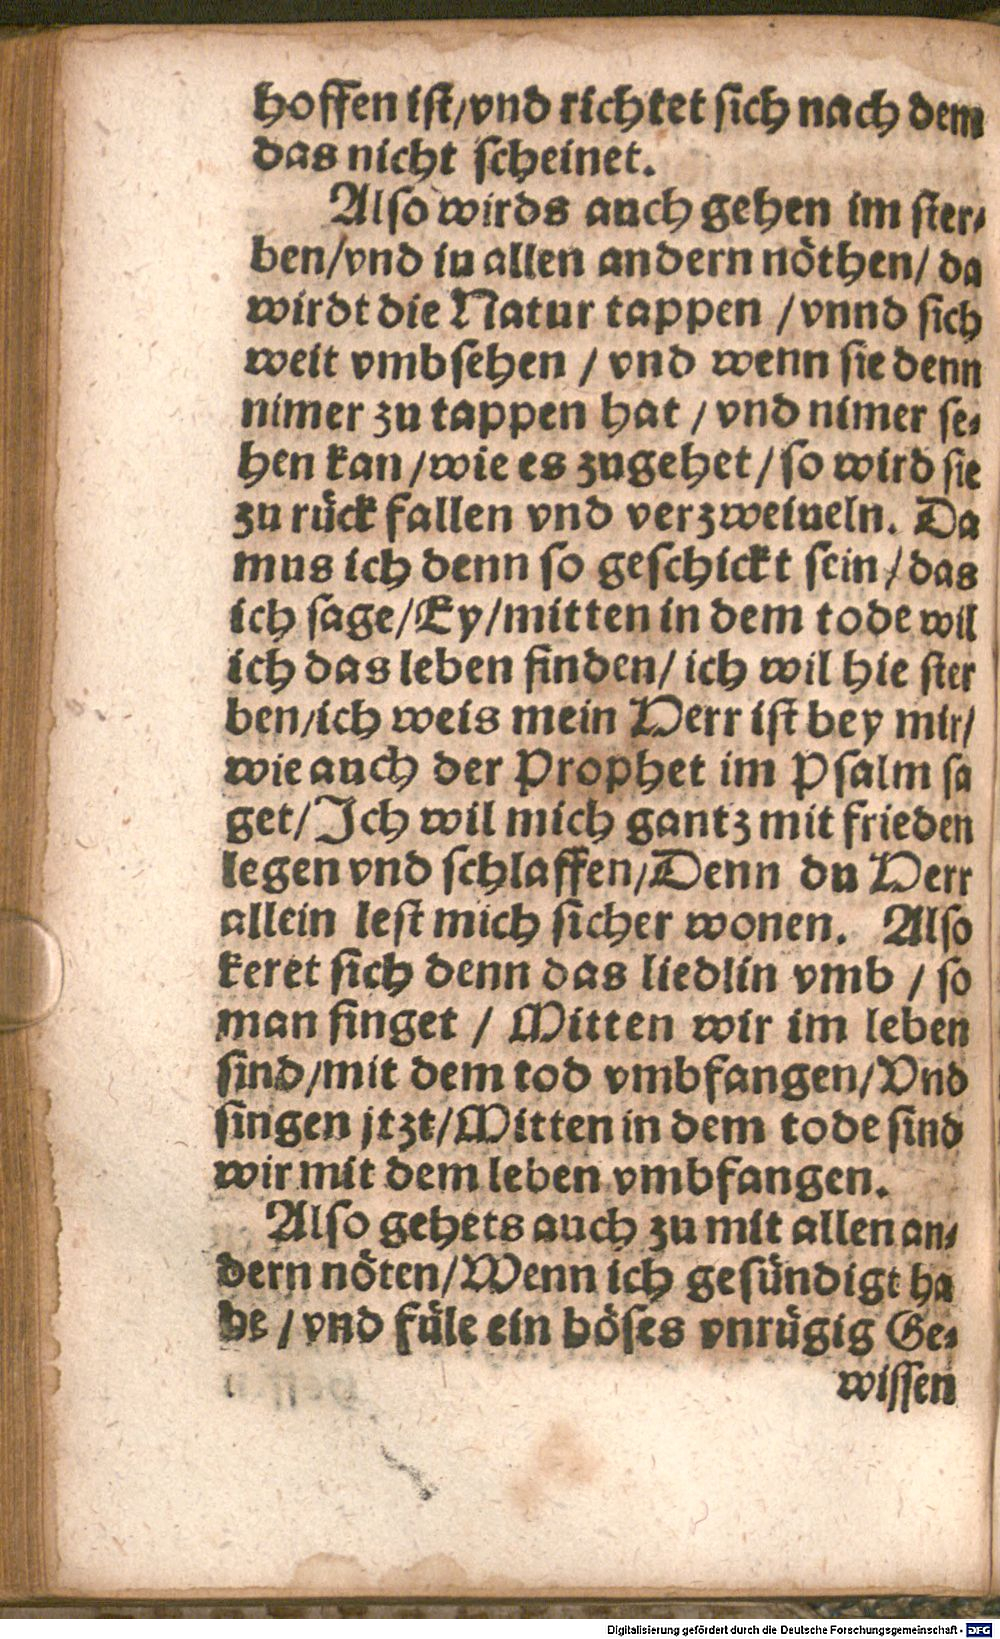 hoffen ist/vnd richtet sich nach dem
das nicht scheinet.
Also wirds auch gehen im ster⸗
ben/vnd in allen andern nöthen/ da
wirdt die Natur tappen /vnnd sich
weit vmbsehen / vnd wenn sie denn
nimer zu tappen hat / vnd nimer se⸗
hen kan /wie es zugehet/ so wird sie
zu rück fallen vnd verzweiueln. Da
mus ich denn so geschickt sein/ das
ich sage/Ey/mitten in dem tode wil
ich das leben finden/ ich wil hie ster
ben/ich weis mein Herr ist bey mir/
wie auch der Prophet im Psalm sa
get/Ich wil mich gantz mit frieden
legen vnd schlaffen/Denn du Herr
allein lest mich sicher wonen. Also
keret sich denn das liedlin vmb / so
man singet / Mitten wir im leben
sind/mit dem tod vmbfangen/Vnd
singen jtzt/Mitten in dem tode sind
wir mit dem leben vmbfangen.
Also gehets auch zu mit allen an⸗
dern nöten/Wenn ich gesündigt ha
be / vnd füle ein böses vnrügig Ge⸗
wissen
Digitalisierung gefördert durch die Deutsche Forschungsgemeinschaft - DFG